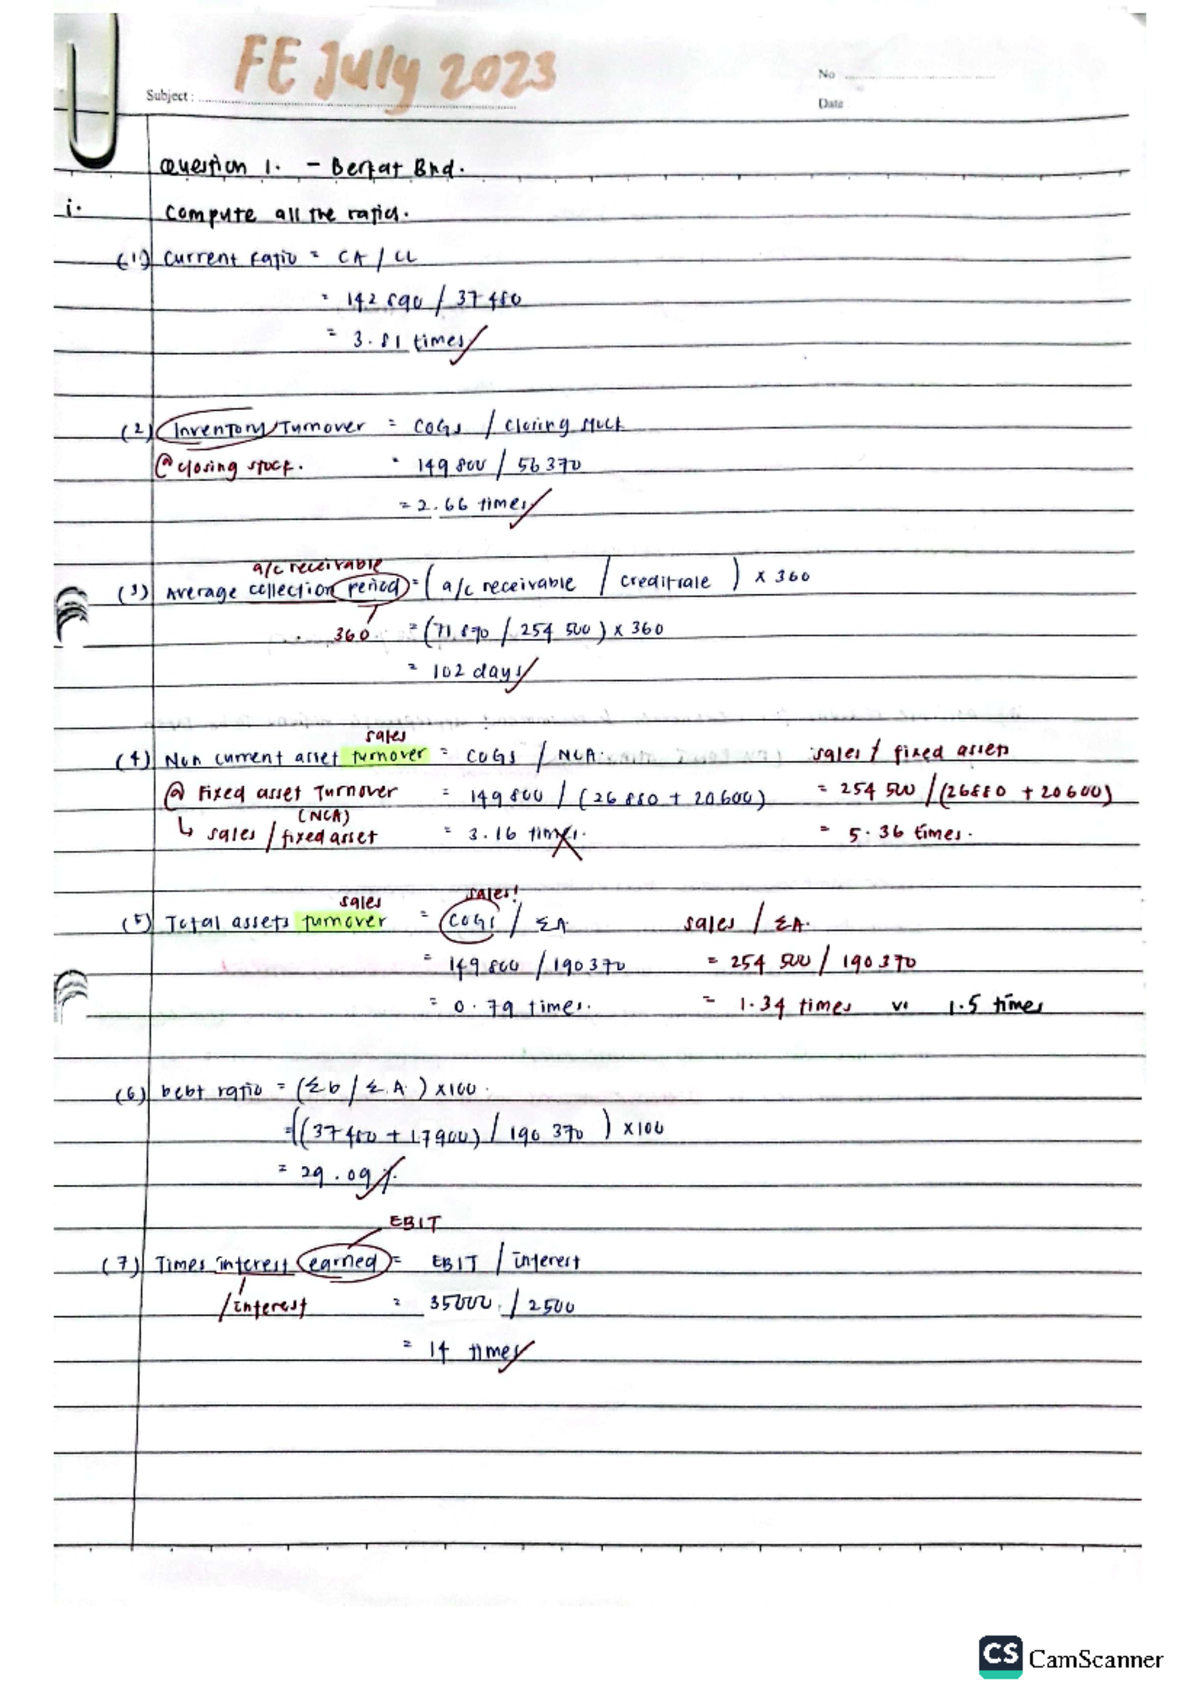 FE July 2023
Subject :
No
Date
Question 1. - Berkat Bhd.
i. Compute all the ratios.
(1) Current ratio = CA / CL
= 142 890 / 37 480
= 3.81 times
(2) Inventory Turnover = COGS / closing stock
@ closing stock. = 149 800 / 56 370
= 2.66 times
a/c receivable
(3) Average collection period = ( a/c receivable / credit sale ) x 360
360 = (71 890 / 254 500) x 360
= 102 days
sales
(4) Non current asset turnover = COGS / NCA. sales / fixed assets
@ Fixed asset Turnover = 149 800 / (26 880 + 20 600) = 254 500 / (26880 + 20 600)
(NCA)
↳ sales / fixed asset = 3.16 times. = 5.36 times.
sales sales!
(5) Total assets turnover = COGS / ΣA sales / ΣA.
= 149 800 / 190 370 = 254 500 / 190 370
= 0.79 times. = 1.34 times vs 1.5 times
(6) Debt ratio = (ΣD / ΣA) x100.
=((37 480 + 17900) / 190 370 ) x100
= 29.09%
EBIT
(7) Times interest earned = EBIT / interest
/interest = 35000 / 2500
= 14 times
CS CamScanner